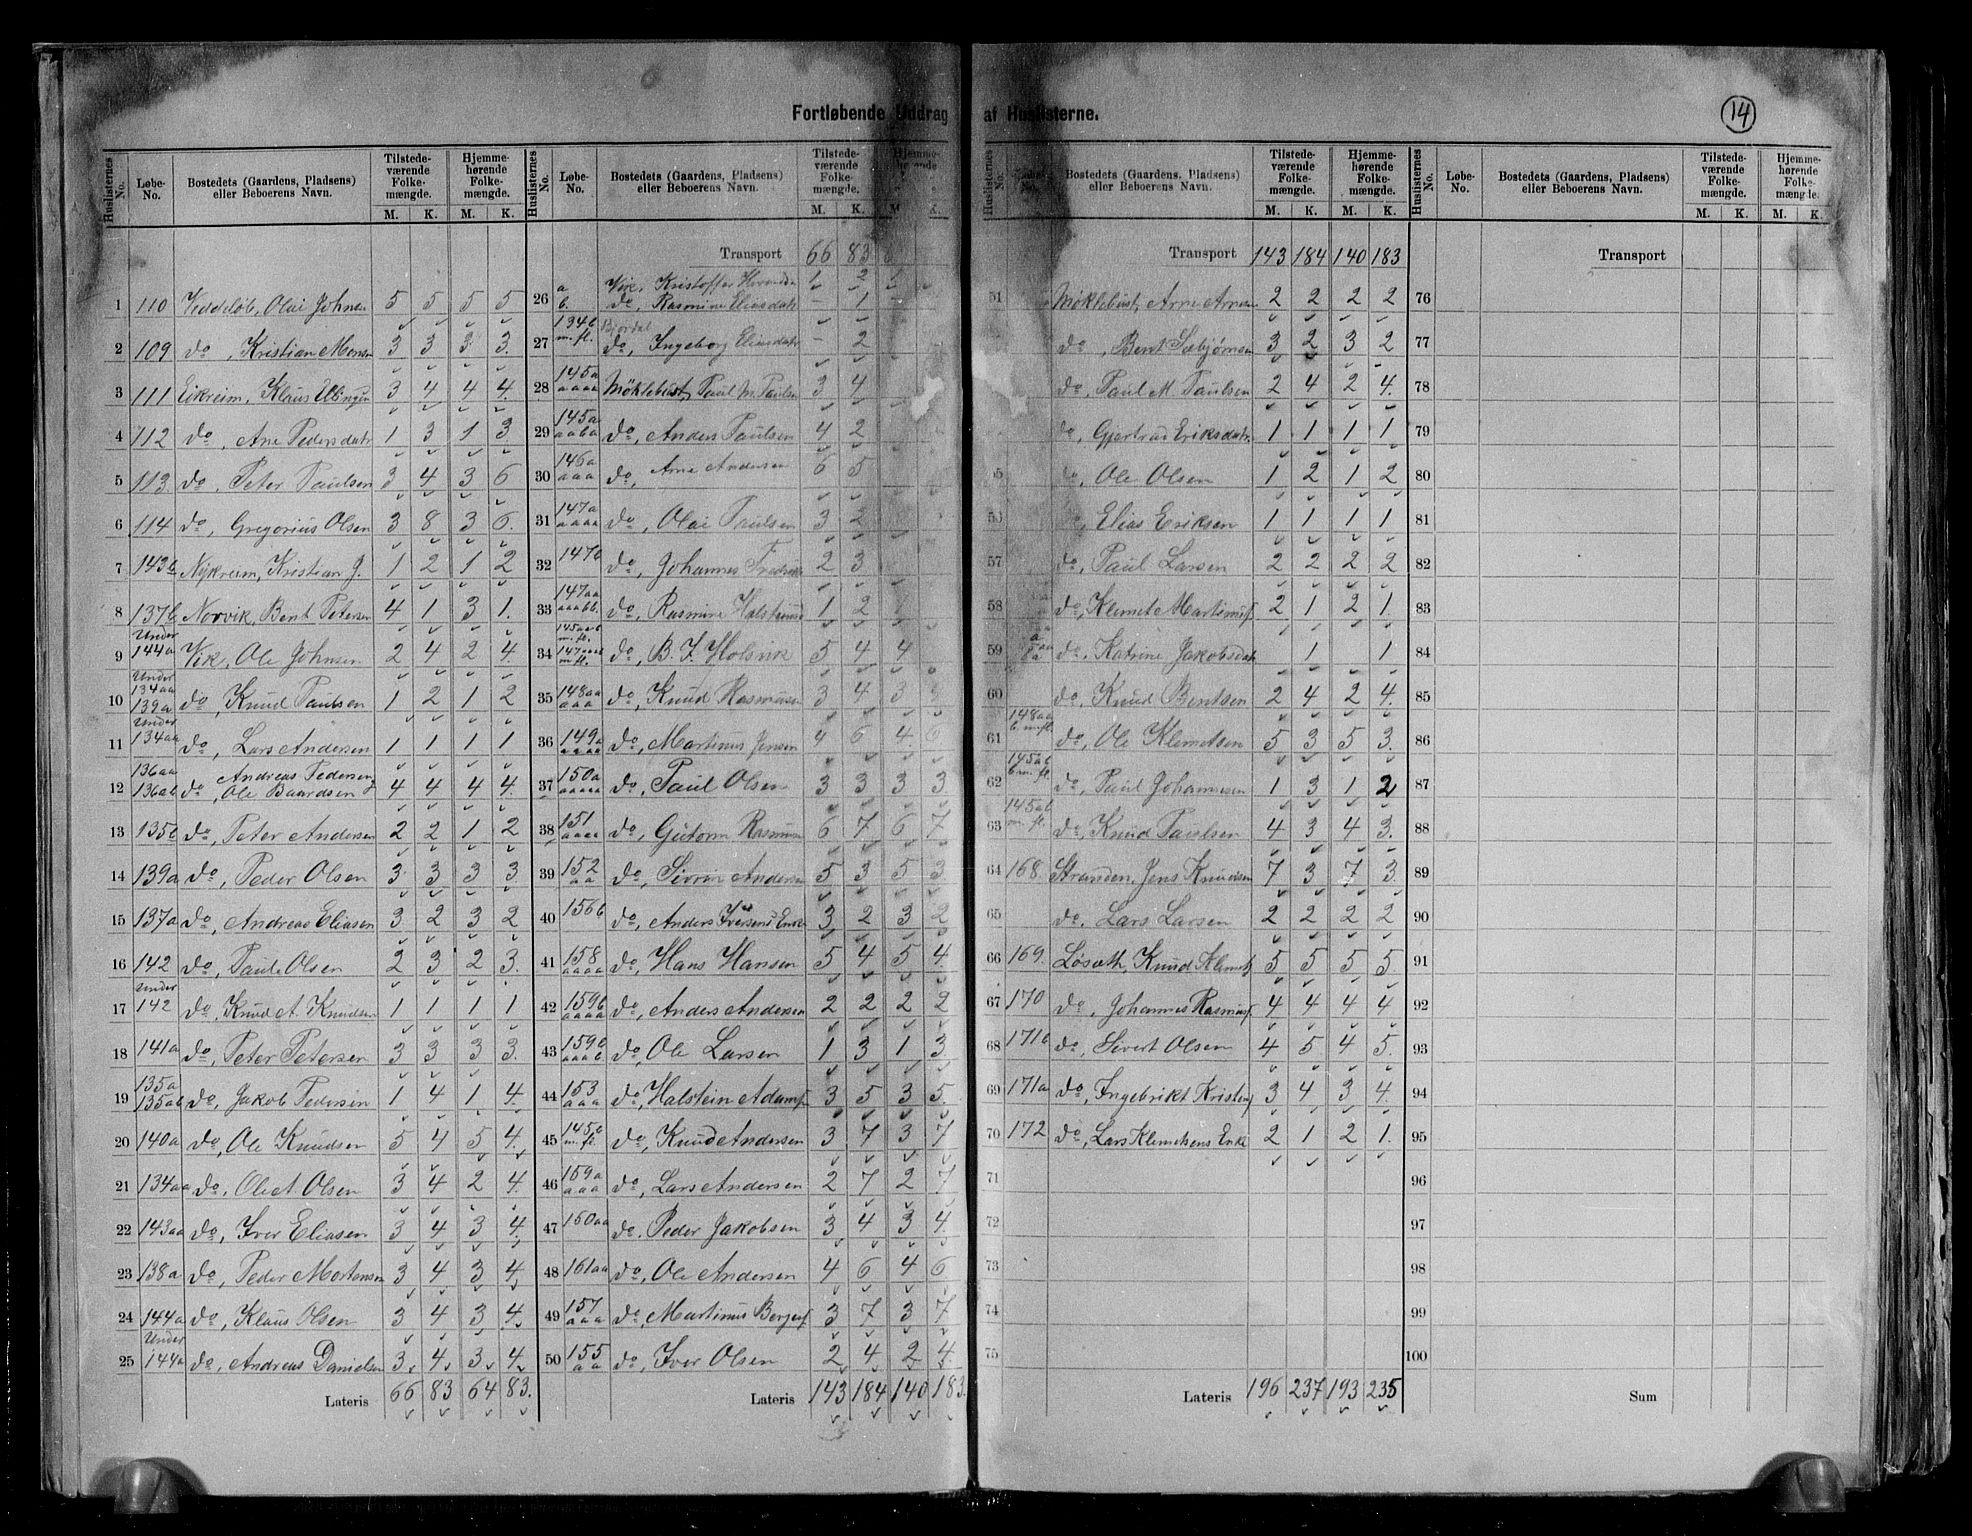 Fortløbende Uddrag af Huslisterne.
14
Huslisternes No. Løbe-No. Bostedets (Gaardens, Pladsens) eller Beboerens Navn. Tilstedeværende Folkemængde. M. K. Hjemmehørende Folkemængde. M. K.
1 110 Veddeløb, Olai Johnsen 5 5 5 5
2 109 do, Kristian Monsen 3 3 3 3.
3 111 Eikreim, Klaus Ellingsen 3 4 4 4.
4 112 do, Ane Pedersdatr 1 3 1 3
5 113 do, Peter Paulsen 3 4 3 6
6 114 do, Gregorius Olsen 3 8 3 6.
7 143b Nykreim, Kristian J. 1 2 1 2
8 137b Norvik, Bent Petersen 4 1 3 1.
9 Under 144a Vik, Ole Johnsen 2 4 2 4.
10 Under 134aa 139a do, Knud Paulsen 1 2 1 2
11 Under 134aa do, Lars Andersen 1 1 1 1
12 136aa 136ab do, Andreas Pedersen Ole Baardsen 4 4 4 4.
13 135b do, Peter Andersen 2 2 1 2
14 139a do, Peder Olsen 3 3 3 3
15 137a do, Andreas Eliasen 3 2 3 2
16 142 do, Paul Olsen 2 3 2 3.
17 Under 142 do, Knud A. Knudsen 1 1 1 1
18 141a do, Peter Petersen 3 3 3 3.
19 135a 135ab do, Jakob Pedersen 1 4 1 4.
20 140a do, Ole Knudsen 5 4 5 4.
21 134aa do, Ole A. Olsen 3 4 2 4.
22 143aa do, Iver Eliasen 3 4 3 4.
23 138a do, Peder Mortensen 3 4 3 4.
24 144a do, Klaus Olsen 3 4 3 4.
25 Under 144a do, Andreas Danielsen 3 4 3 4
Lateris 66 83 64 83.
Huslisternes No. Løbe-No. Bostedets (Gaardens, Pladsens) eller Beboerens Navn. Tilstedeværende Folkemængde. M. K. Hjemmehørende M. K.
Transport 66 83
26 a b Vik, Kristoffer 2 1
do, Rasmine Eliasdatr – 1
27 134b m.fl. Bjørdal do, Ingeborg Eliasdatr – 2
28 145a aaaa Møklebust, Paul M. Paulsen 3 4
29 145a aaba do, Anders Paulsen 4 2
30 146a aaa do, Arne Andersen 6 5
31 147a aaaa do, Olai Paulsen 3 2
32 147b do, Johannes Fredriks 2 3
33 147aa aaabb. do, Rasmine Halstensd 1 2
34 145aab m.fl. 147aab m.fl. do, B. J. Holsvik 5 4 4
35 148aa aaa do, Knud Rasmussen 3 4 3 3
36 149a aaaa do, Martinus Jensen 4 6 4 6
37 150a aaaaa do, Paul Olsen 3 3 3 3
38 151 aaaa do, Gutorm Rasmuss 6 7 6 7
39 152 aa do, Sivrin Andersen 5 3 5 3.
40 156b do, Anders Iversens Enke 3 2 3 2
41 158 aaaa do, Hans Hansen 5 4 5 4
42 159b aaaa do, Anders Andersen 2 2 2 2
43 159b aaab do, Ole Larsen 1 3 1 3
44 153 aaa do, Halstein Adamsen 3 5 3 5.
45 145b m.fl. do, Knud Andersen 3 7 3 7
46 159a aaa do, Lars Andersen 2 7 2 7
47 160aa do, Peder Jakobsen 3 4 3 4
48 161aa do, Ole Andersen 4 6 4 6
49 157 aaa do, Martinus Bergesf 3 7 3 7
50 155 aa do, Iver Olsen 2 4 2 4
Lateris 143 184 140 183.
Bostedets (Gaardens, Pladsens) eller Beboerens Navn. Tilstedeværende Folkemængde. M. K. Hjemmehørende Folkemængde. M. K.
Transport 143 184 140 183
51 Møklebust, Arne Arnesen 2 2 2 2
do, Bent Sæbjørnsen 3 2 3 2
do, Paul M. Paulsen 2 4 2 4.
do, Gjertrud Eriksdatr. 1 1 1 1
do, Ole Olsen 1 2 1 2
Elias Eriksen 1 1 1 1
57 do, Paul Larsen 2 2 2 2
58 do, Klemet Martinusf. 2 1 2 1.
59 do, Katrine Jakobsdatr 1 1
60 do, Knud Bentsen 2 4 2 4.
61 148aa b.m.fl. do, Ole Klemetsen 5 3 5 3.
62 145ab b m.fl. do, Paul Johannesen 1 3 1 2
63 145ab m.fl. do, Knud Paulsen 4 3 4 3.
64 168. Stranden, Jens Knudsen 7 3 7 3.
65 do. Lars Larsen 2 2 2 2
66 169. Løsæth, Knud Klemetsf 5 5 5 5.
67 170 do, Johannes Rasmusf. 4 4 4 4
68 171b do, Sivert Olsen 4 5 4 5.
69 171a do, Ingebrikt Kristenf 3 4 3 4.
70 172 do, Lars Klemetsens Enke 2 1 2 1.
71
72
73
74
75
Lateris 196 237 193 235
Huslisternes No. Løbe-No. Bostedets (Gaardens, Pladsens) eller Beboerens Navn. Tilstedeværende Folkemængde. M. K. Hjemmehørende Folkemængde. M. K.
Transport
76
77
78
79
80
81
82
83
84
85
86
87
88
89
90
91
92
93
94
95
96
97
98
99
100
Sum